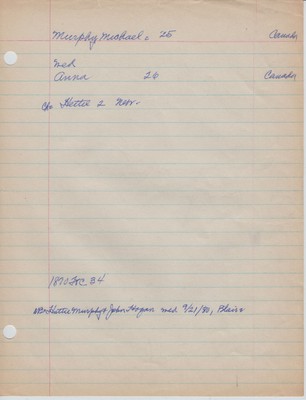 Murphy Michael 25 Canada
wed
Anna 26 Canada
Ch. Hettie 2 Nev.
1870 F.C. 34
Hettie Murphy & John Hogan wed 9/21/80, Blair